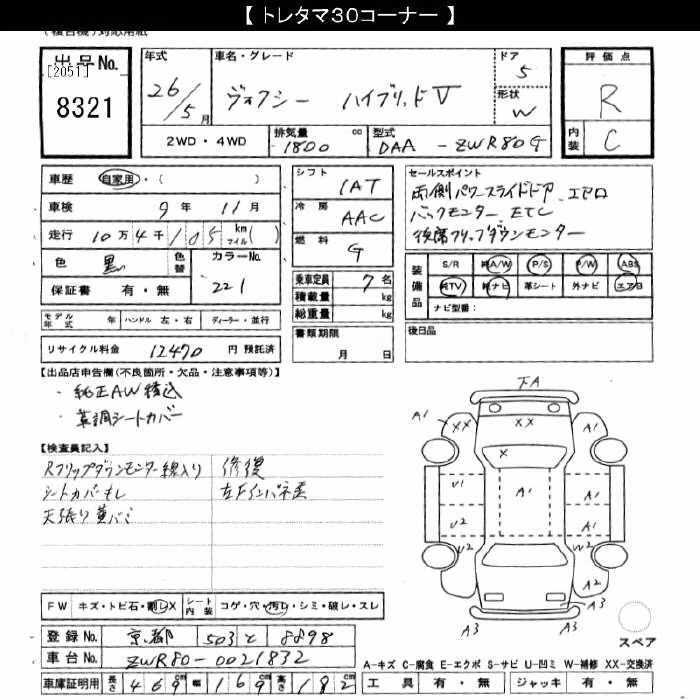 【 トレタマ30コーナー 】
出品No. [2051] 8321
年式 26/5月
車名・グレード ヴォクシー ハイブリッドV
ドア 5
形状 W
2WD・4WD
排気量 1800 cc
型式 DAA-ZWR80G
評価点 R
内装 C
車歴 自家用・( )
車検 9年11月
走行 10万4千105 km マイル( )
色 黒 色替 カラーNo. 221
保証書 有・無
モデル年式 年 ハンドル 左・右 ディーラー・並行
リサイクル料金 12470 円 預託済
シフト IAT
冷房 AAC
燃料 G
乗車定員 7名
積載量 kg
総重量 kg
書類期限 月 日
セールスポイント
両側パワースライドドア エアロ
バックモニター ETC
後席フリップダウンモニター
装備品 S/R 純A/W P/S P/W ABS
純TV 純ナビ 革シート 外ナビ エアB
ナビ型番:
後日品
【出品店申告欄(不良箇所・欠品・注意事項等)】
・純正AW積込
・革調シートカバー
【検査員記入】
Rフリップダウンモニター線入り
シートカバーモレ
天張り黄バミ
修復
左Fインパネ歪
FA
A1 XX XX X A1
U1 A1 A1
U2 A1
U2 W2
A2 A2
A3 A3 A3
スペア
FW キズ・トビ石・割レX シート内装 コゲ・穴・汚レ・シミ・破レ・スレ
登録No. 京都 503 と 8898
車台No. ZWR80-0021832
A-キズ C-腐食 E-エクボ S-サビ U-凹ミ W-補修 XX-交換済
車庫証明用 長さ 469 幅 169 高さ 182 工具 有・無 ジャッキ 有・無